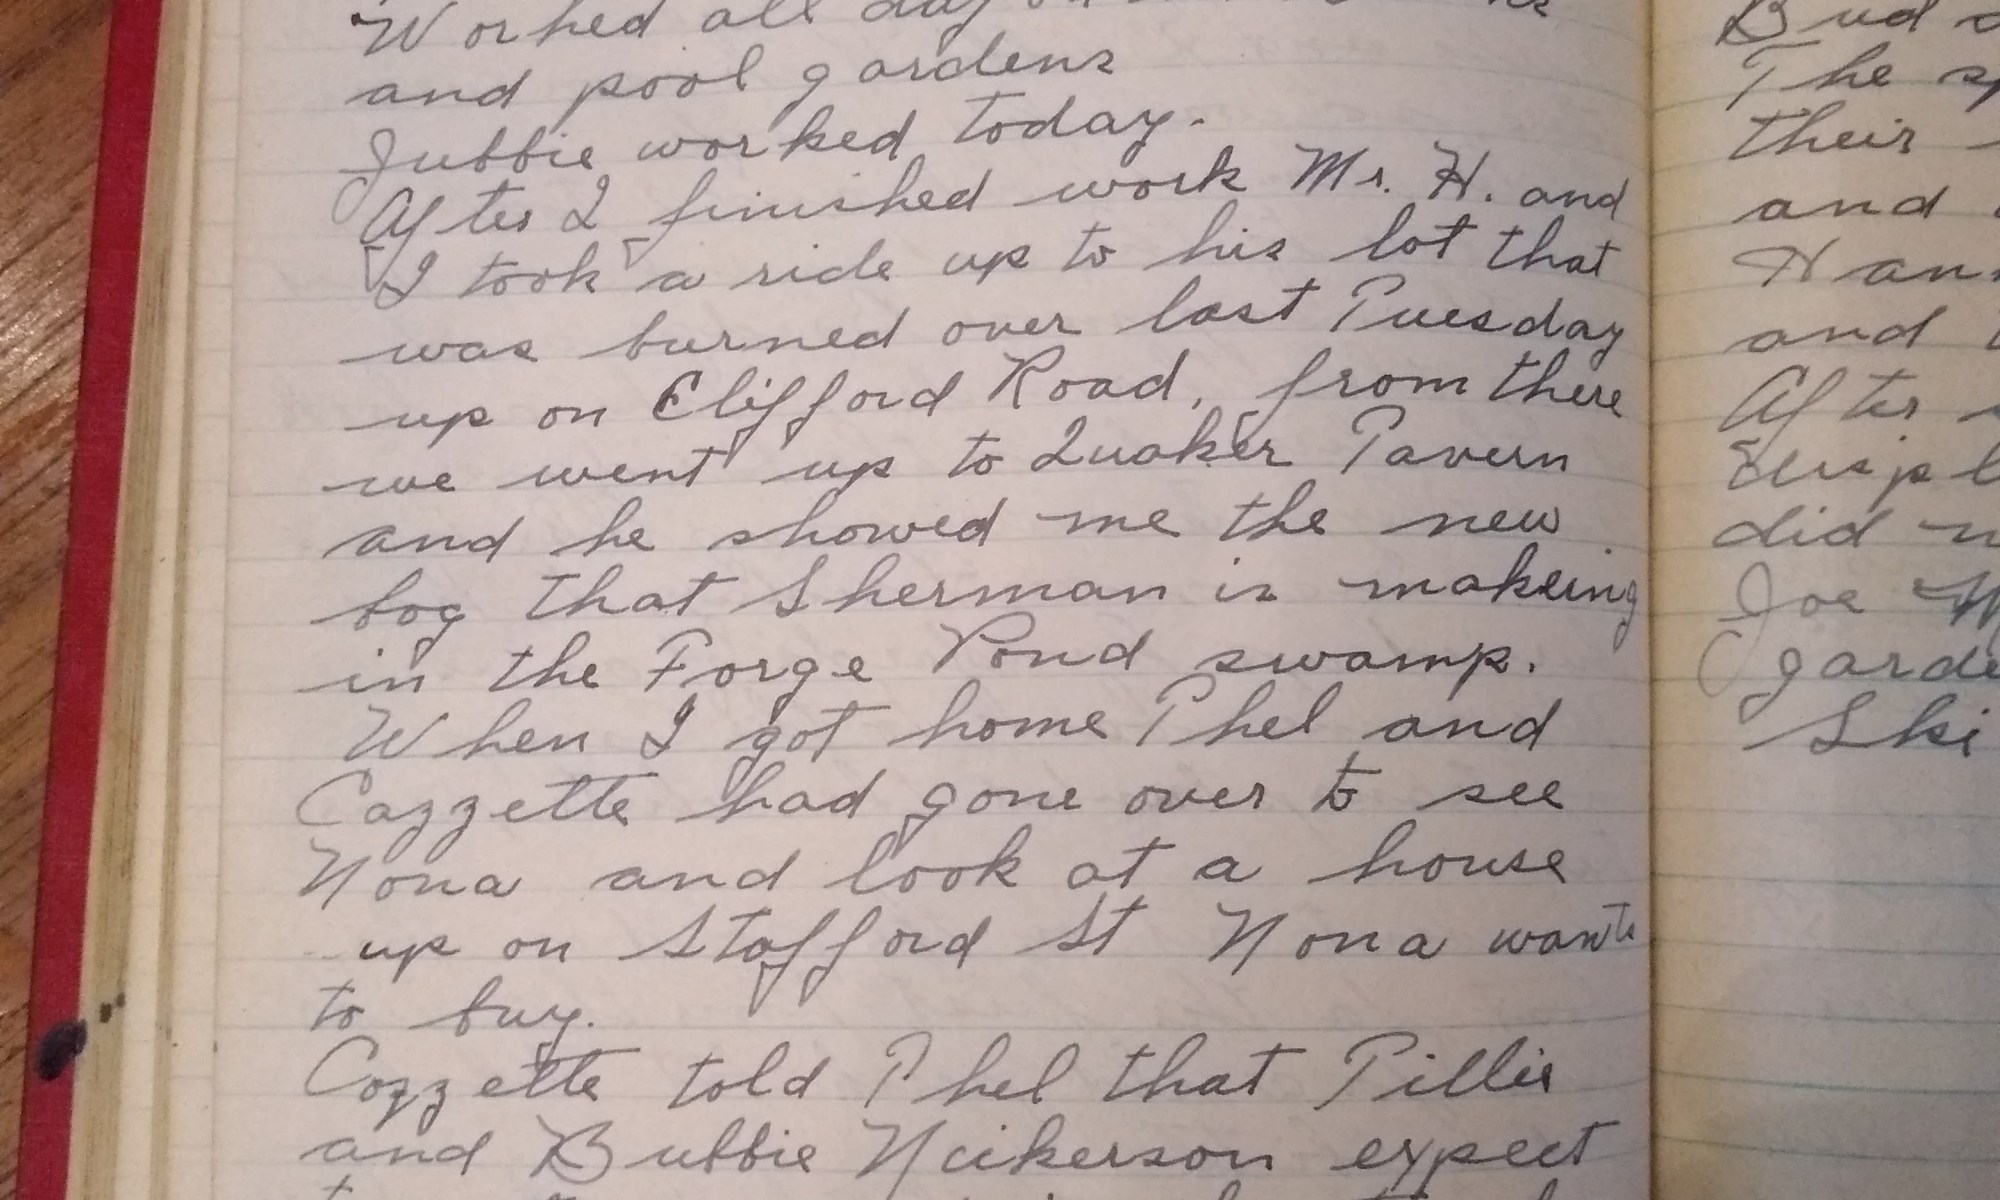 Worked all day
and pool gardens
Jubbie worked today.
After I finished work Mr. H. and
I took a ride up to his lot that
was burned over last Tuesday
up on Clifford Road, from there
we went up to Quaker Tavern
and he showed me the new
bog that Sherman is makeing
in the Forge Pond swamp.
When I got home Thel and
Cozzette had gone over to see
Nona and look at a house
up on Stafford St Nona wants
to buy.
Cozzette told Thel that Tillie
and Bubbie Nickerson expect
Bud
The
their
and
and
After
did
Joe